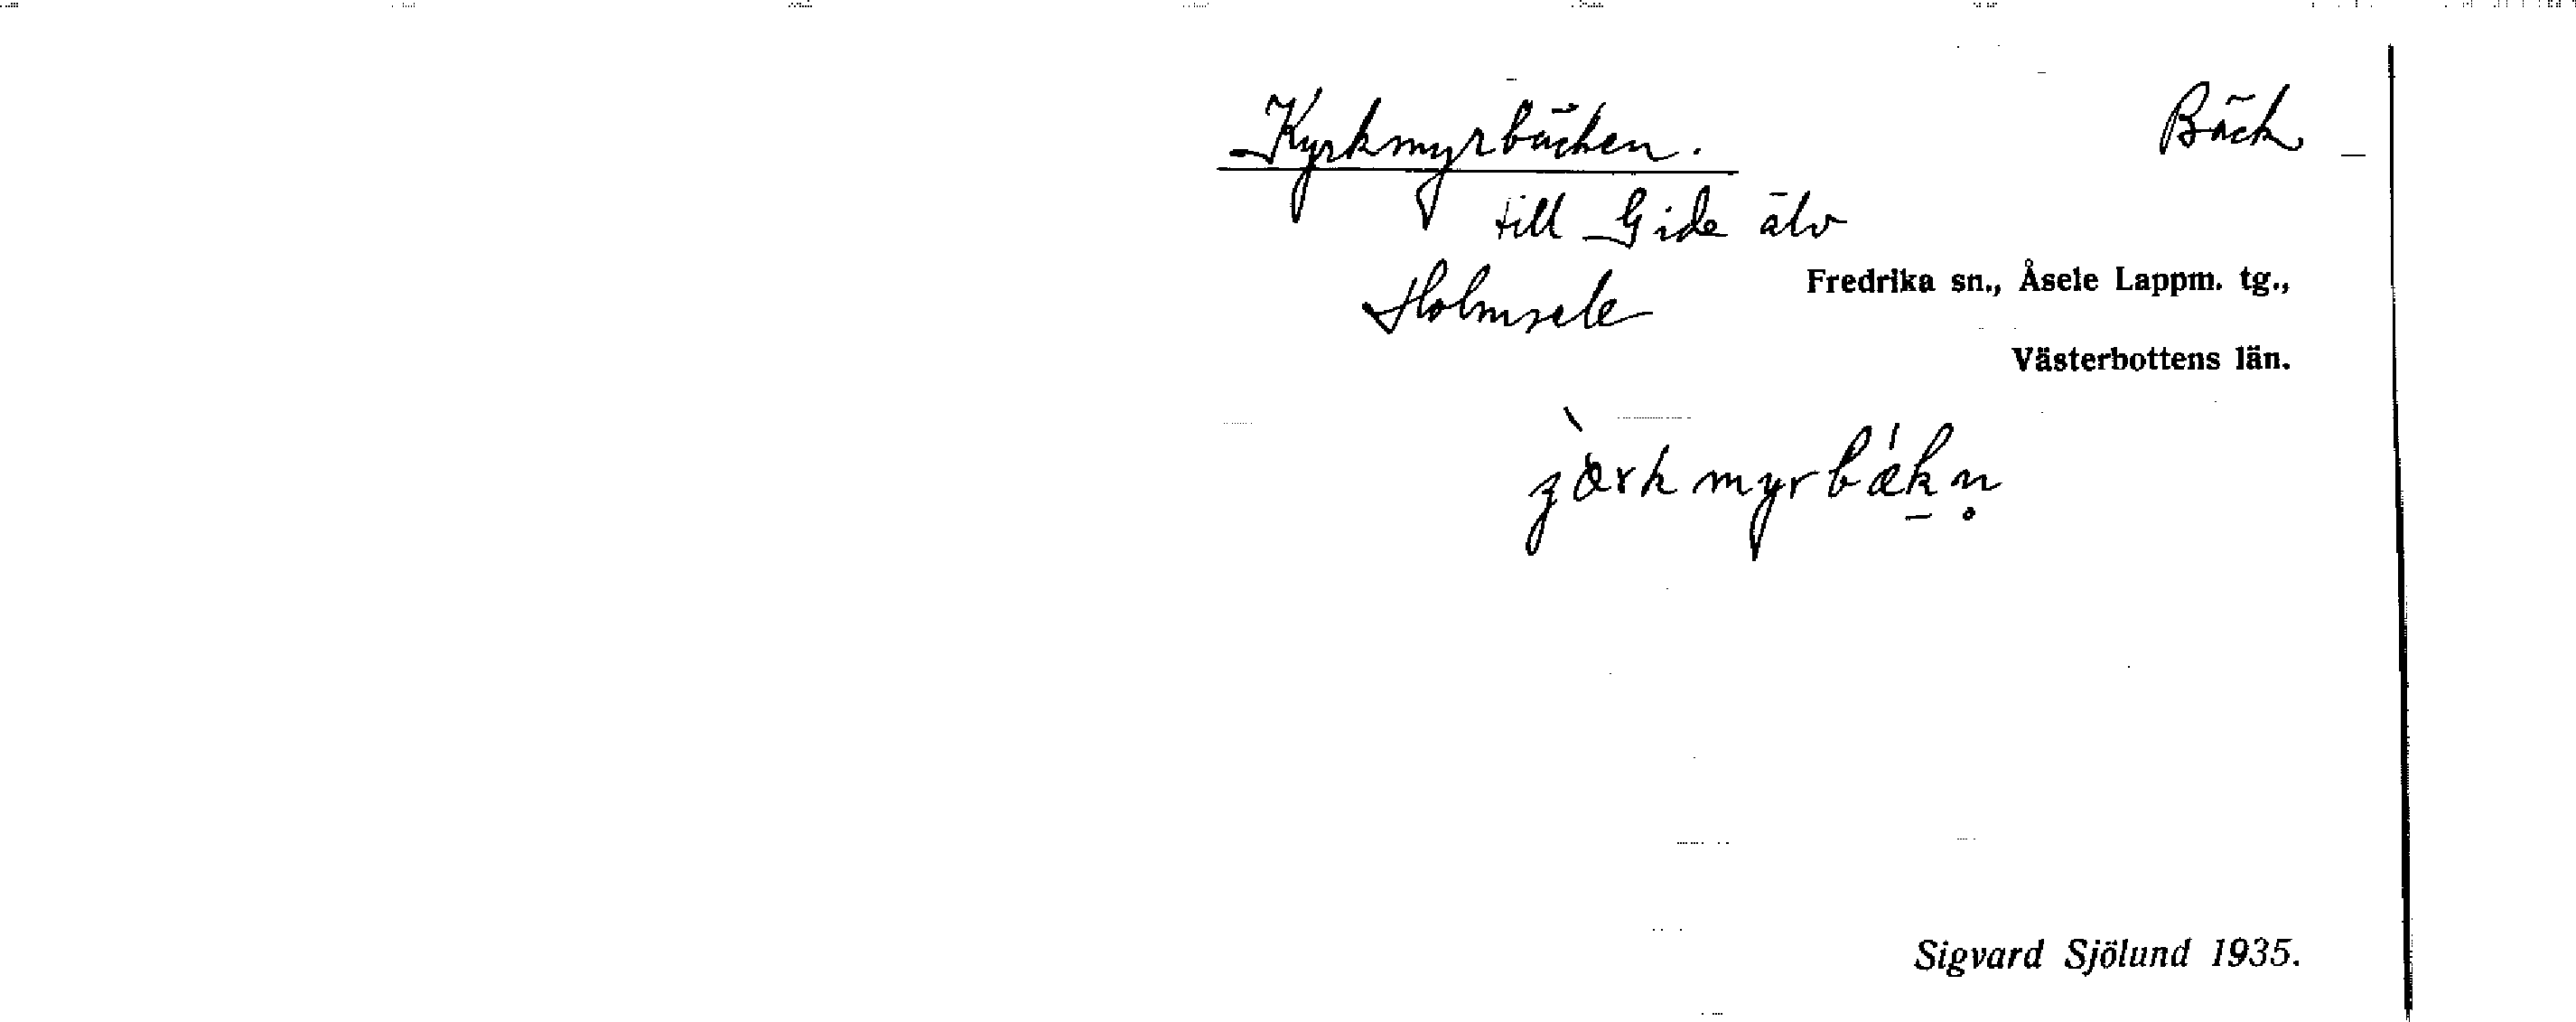 Kyrkmyrbäcken.
Bäck
till Gide älv
Holmsele
Fredrika sn., Åsele Lappm. tg.,
Västerbottens län.
Sigvard Sjölund 1935.